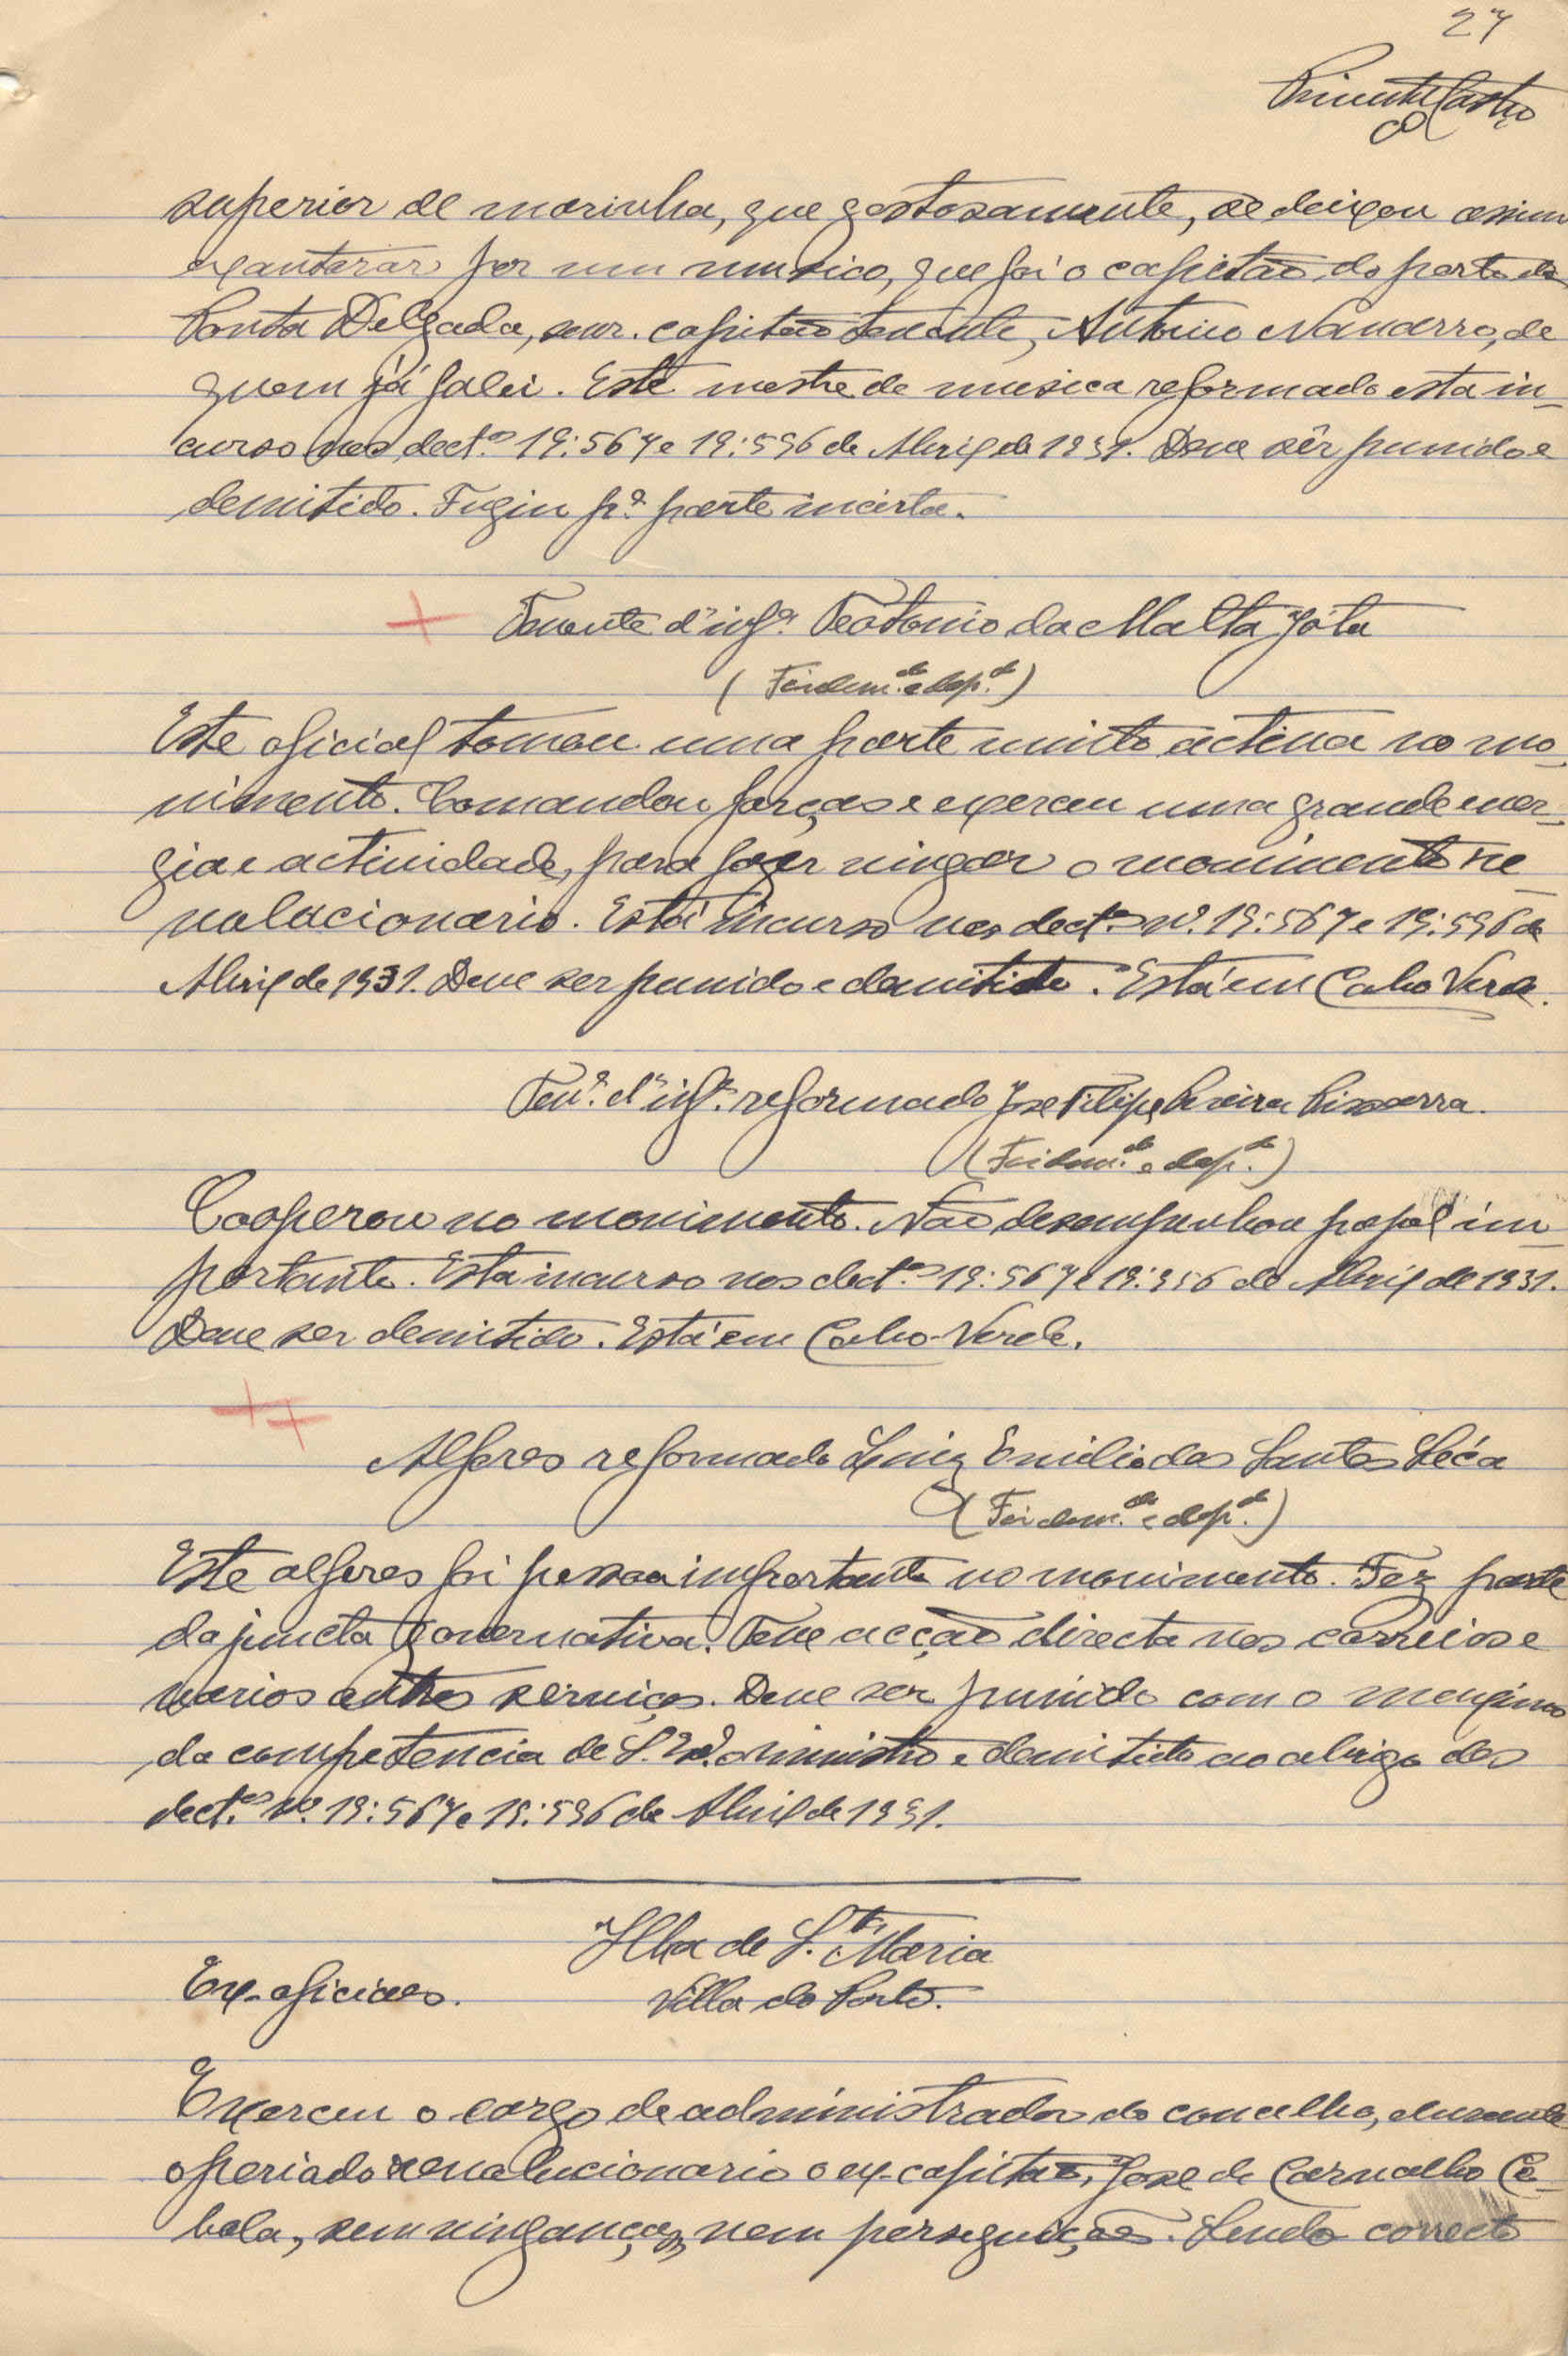 27
Vicente Castro
superior de marinha, que gostosamente, se deixou assim
exauturar por um musico, que foi o capitão do porto de
Ponta Delgada, snr. capitão tenente, Antonio Navarro, de
quem já falei. Este mestre de musica reformado esta in-
curso nos dect.os 19:567 e 19:596 de Abril de 1931. Deve sêr punido e
demitido. Fugiu p.ª parte incerta.
Tenente d'inf.ª Teotonio da Malta Jóta
(Foi dem.do e dep.do)
Este oficial tomou uma parte muito activa no mo-
vimento. Comandou forças e exerceu uma grande ener-
gia e actividade, para fazer vingar o movimento re-
volucionario. Está incurso nos dect.os nº. 19:567 e 19:596 de
Abril de 1931. Deve ser punido e demitido. Está em Cabo Verde.
Ten.e d'inf.ª reformado José Filipe Pizarra.
(Foi dem.do e dep.do)
Cooperou no movimento. Não desempenhou papel im-
portante. Esta incurso nos dect.os 19:567 e 19:956 de Abril de 1931.
Deve ser demitido. Está em Cabo-Verde.
Alferes reformado Luiz Emilio dos Santos Léça
(Foi dem.do e dep.do)
Este alferes foi pessoa importante no movimento. Fez parte
da juncta governativa. Teve acção directa nos correios e
varios outros serviços. Deve ser punido com o maximo
da competencia de S. Ex.ª o ministro e demitido ao abrigo dos
dect.os nº. 19:567 e 19:596 de Abril de 1931.
Ilha de S.ta Maria
Ex-oficiaes.
Villa do Porto.
Exerceu o cargo de administrador do concelho, durante
o periodo revolucionario o ex-capitão, José de Carvalho Ce-
bola, sem vinganças, nem perseguições. Sendo correcto